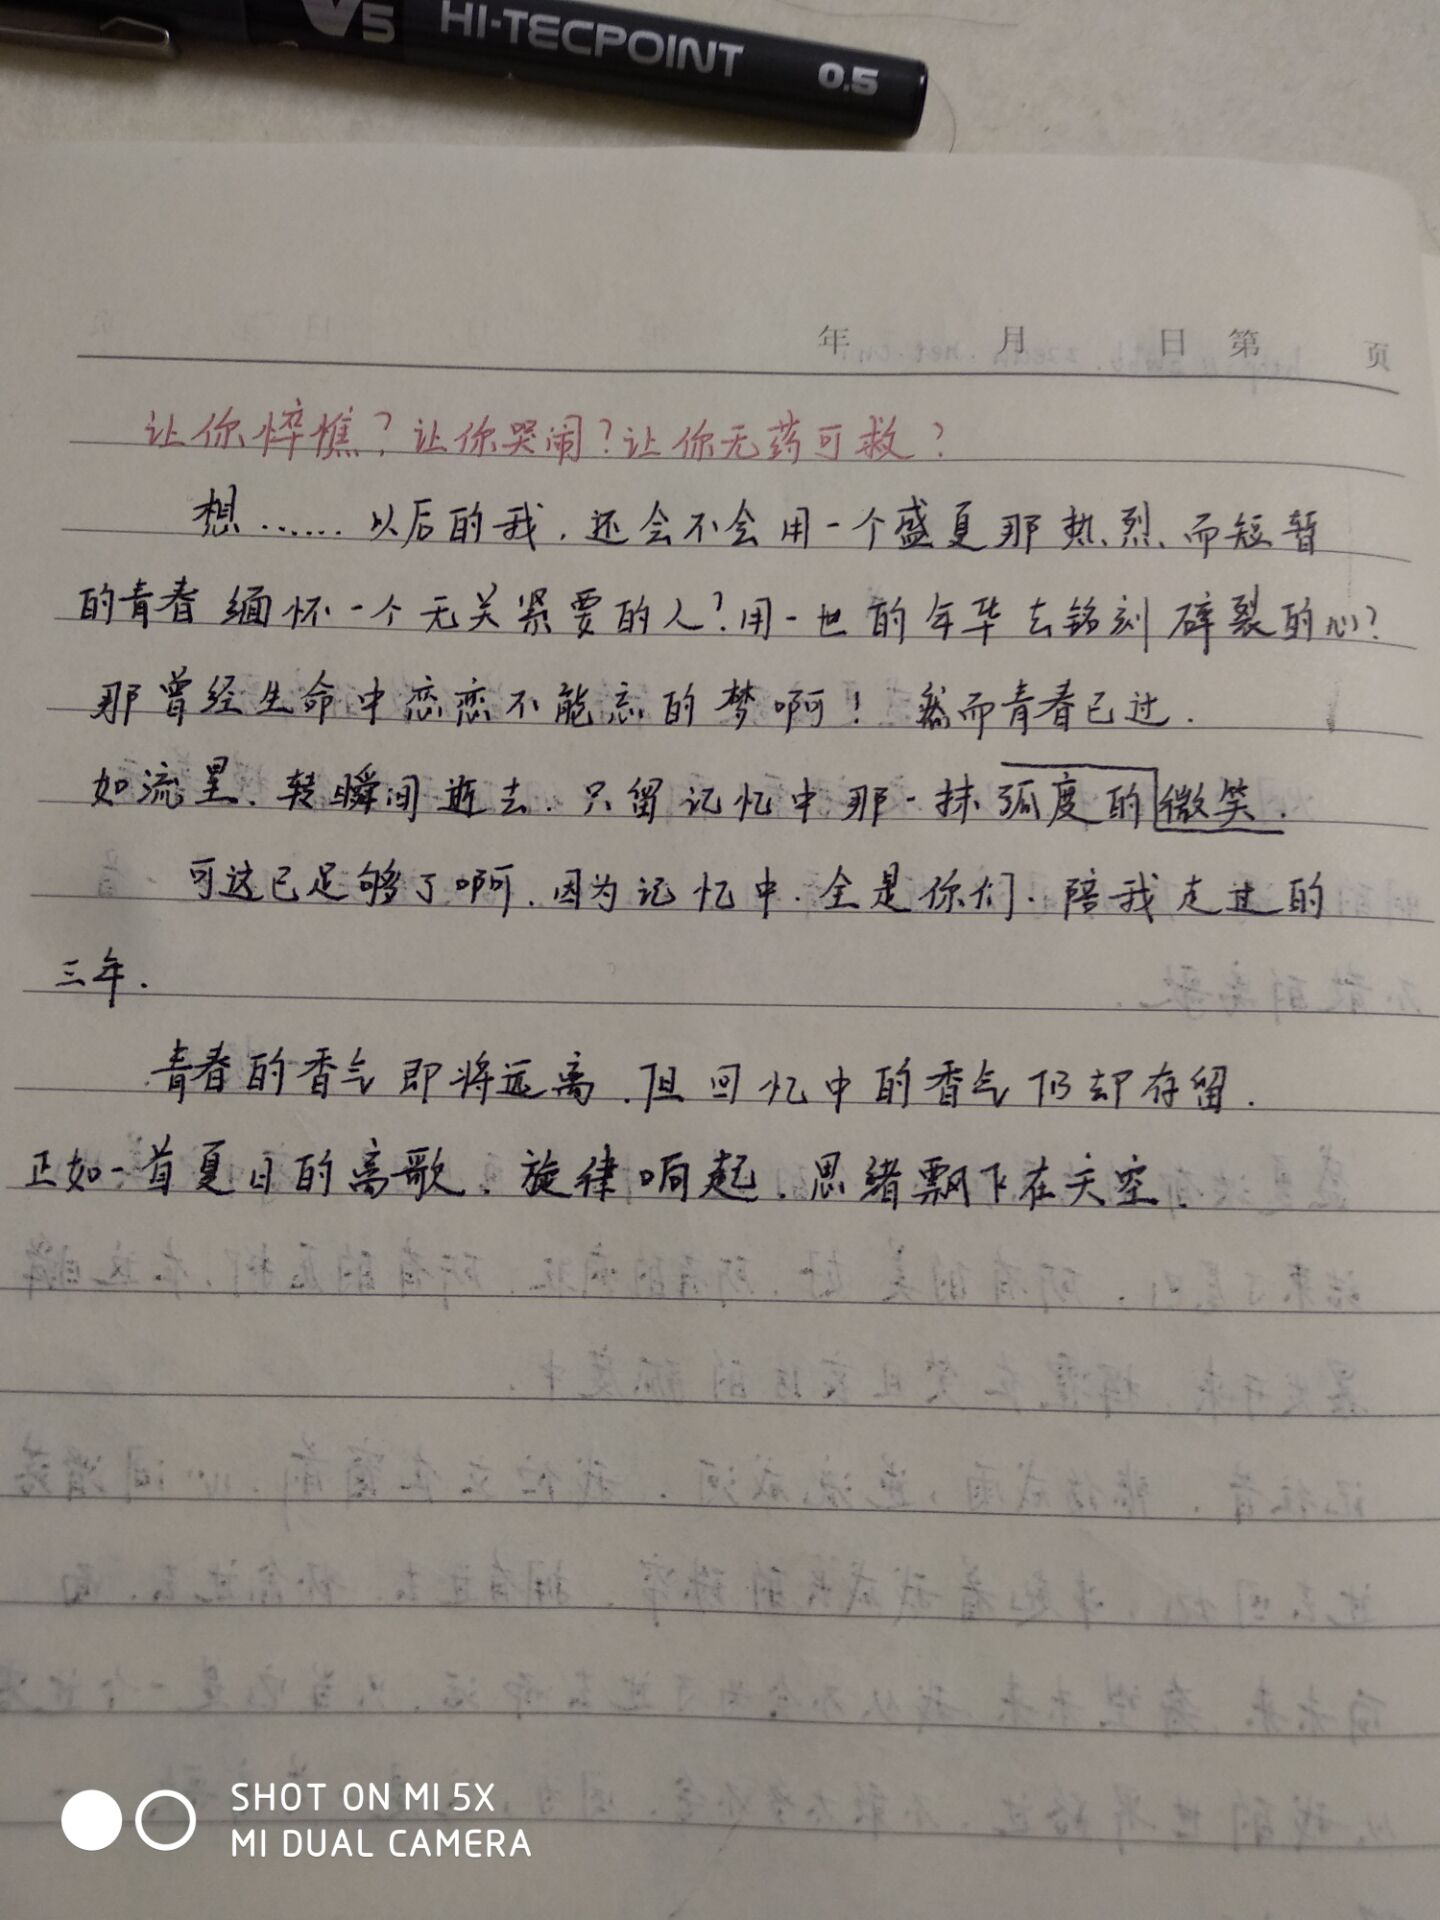 V5 HI-TECPOINT 0.5
年 月 日 第 页
让你悴憔？让你哭闹？让你无药可救？
想......以后的我，还会不会用一个盛夏那热烈、而短暂
的青春缅怀一个无关紧要的人？用一世的年华去铭刻碎裂的心？
那曾经生命中恋恋不能忘的梦啊！然而青春已过．
如流星、转瞬间逝去．只留记忆中那一抹弧度的微笑．
可这已足够了啊，因为记忆中．全是你们．陪我走过的
三年．
青春的香气即将远离．但回忆中的香气仍却存留．
正如一首夏日的离歌、旋律响起．思绪飘下在天空．
SHOT ON MI 5X
MI DUAL CAMERA